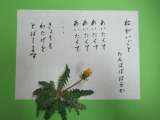 ねがいごと
たんぽぽはるか
あいたくて
あいたくて
あいたくて
あいたくて
・・・
きょうも
わたげを
とばします